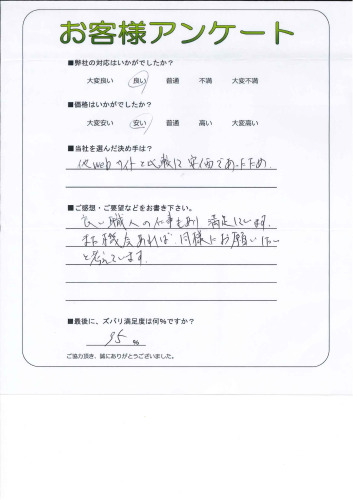 お客様アンケート
■弊社の対応はいかがでしたか？
大変良い 良い 普通 不満 大変不満
■価格はいかがでしたか？
大変安い 安い 普通 高い 大変高い
■当社を選んだ決め手は？
他webサイトと比較して安価であったため
■ご感想・ご要望などをお書き下さい。
良い職人の仕事もあり満足しています。
また機会あれば、同様にお願いしたい
と考えています。
■最後に、ズバリ満足度は何％ですか？
95 %
ご協力頂き、誠にありがとうございました。